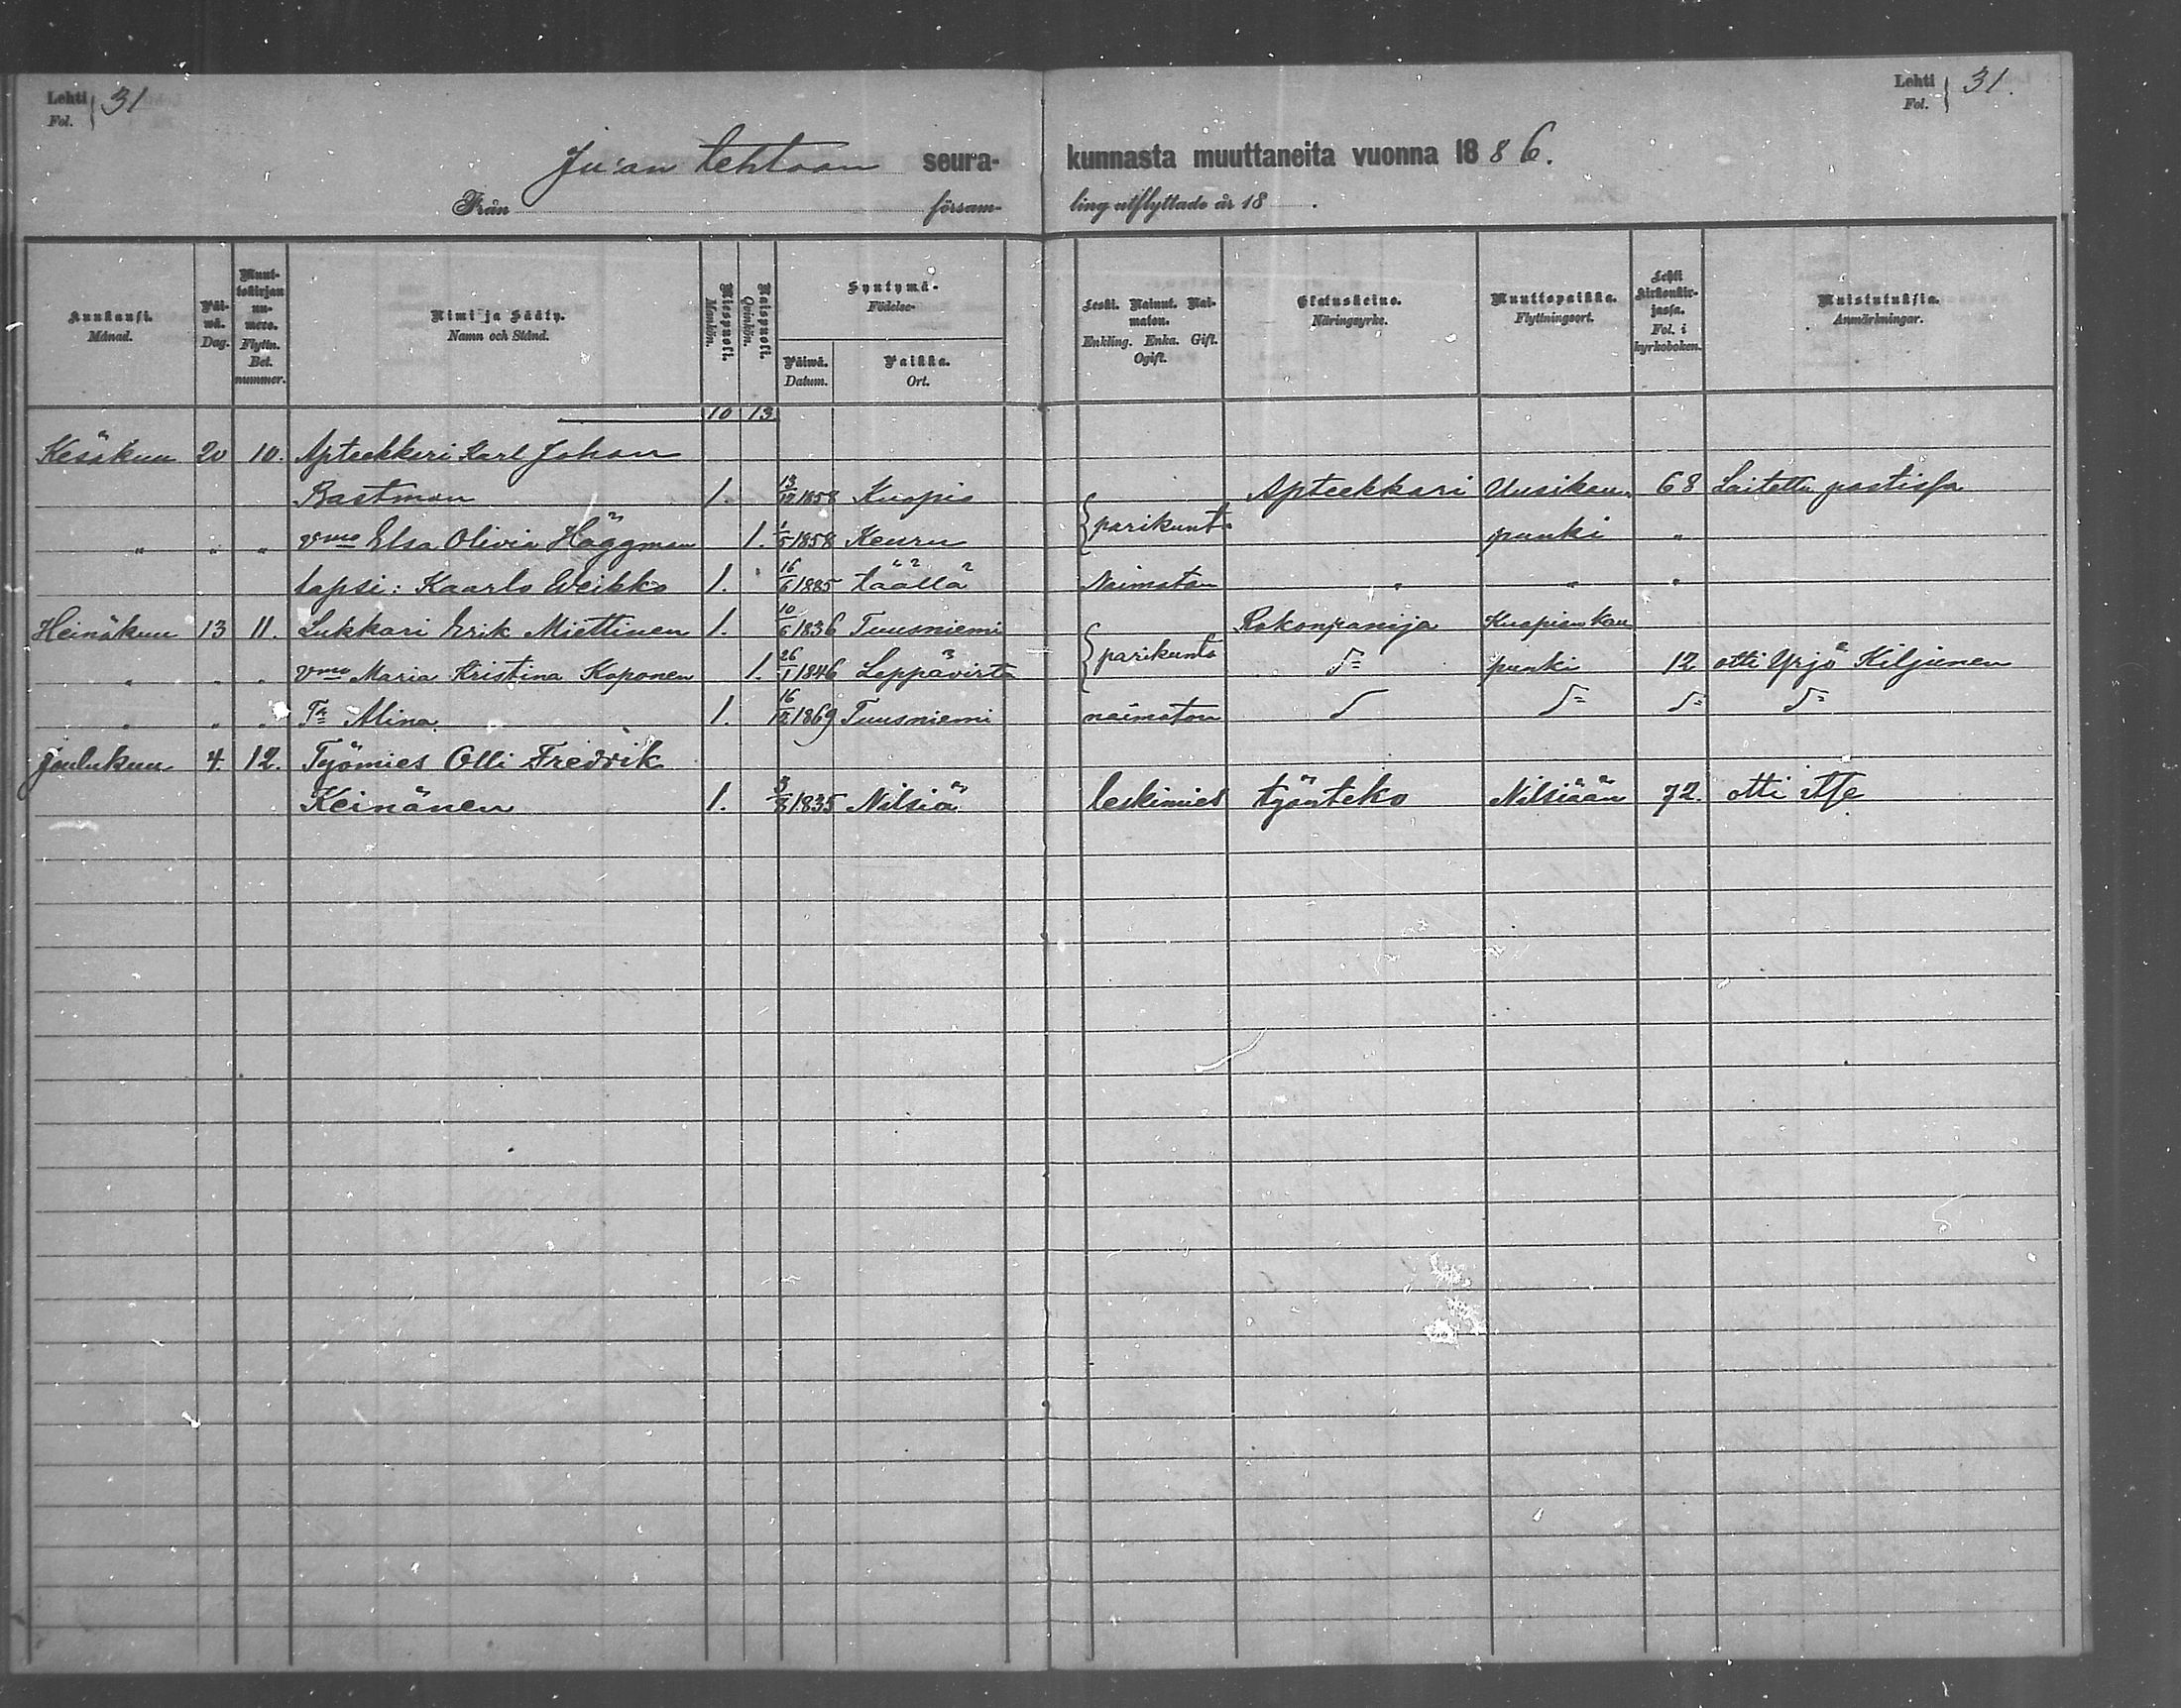 Lehti Fol. } 31
Lehti Fol. } 31.
Ju:an tehtaan seura- kunnasta muuttaneita vuonna 1886.
Från försam- ling utflyttade år 18 .
Kuukausi. Månad. Päi-wä. Dag. Muut-tokirjan nu-mero. Flyttn. Bet. nummer. Nimi ja Sääty. Namn och Stånd. Miespuoli. Mankön. Naispuoli. Qvinkön. Syntymä- Födelse- Päiwä. Datum. Paikka. Ort. Leski. Nainut. Nai-maton. Enkling. Enka. Gift. Ogift. Elatuskeino. Näringsyrke. Muuttopaikka. Flyttningsort. Lehti kirkonkir-jassa. Fol. i kyrkoboken. Muistutuksia. Anmärkningar.
10 13
Kesäkuu 20 10. Apteekkari Karl Johan
Bastman 1. 13/12 1858 Kuopio Apteekkari Uusikau- 68 Laitettu postissa
" " " vmo Elsa Olivia Häggman 1. 1/5 1858 Keuru } parikunta punki "
lapsi: Kaarlo Weikko 1. 16/6 1885 täällä Naimaton " " "
Heinäkuu 13 11. Lukkari Erik Miettinen 1. 10/6 1836 Tuusniemi Rokonpanija Kuopion kau
" " " vmo Maria Kristina Koponen 1. 26/1 1846 Leppävirta } parikunta d= punki 12 otti Yrjö Kiljunen
" " " Tr Alina 1. 16/12 1869 Tuusniemi naimaton d d= d= d=
Joulukuu 4. 12. Työmies Olli Fredrik
Keinänen 1. 3/8 1835 Nilsiä leskimies työnteko Nilsiään 72. otti itse